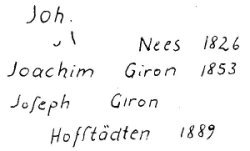 Joh.
Nees 1826
Joachim Giron 1853
Joseph Giron
Hofstädten 1889